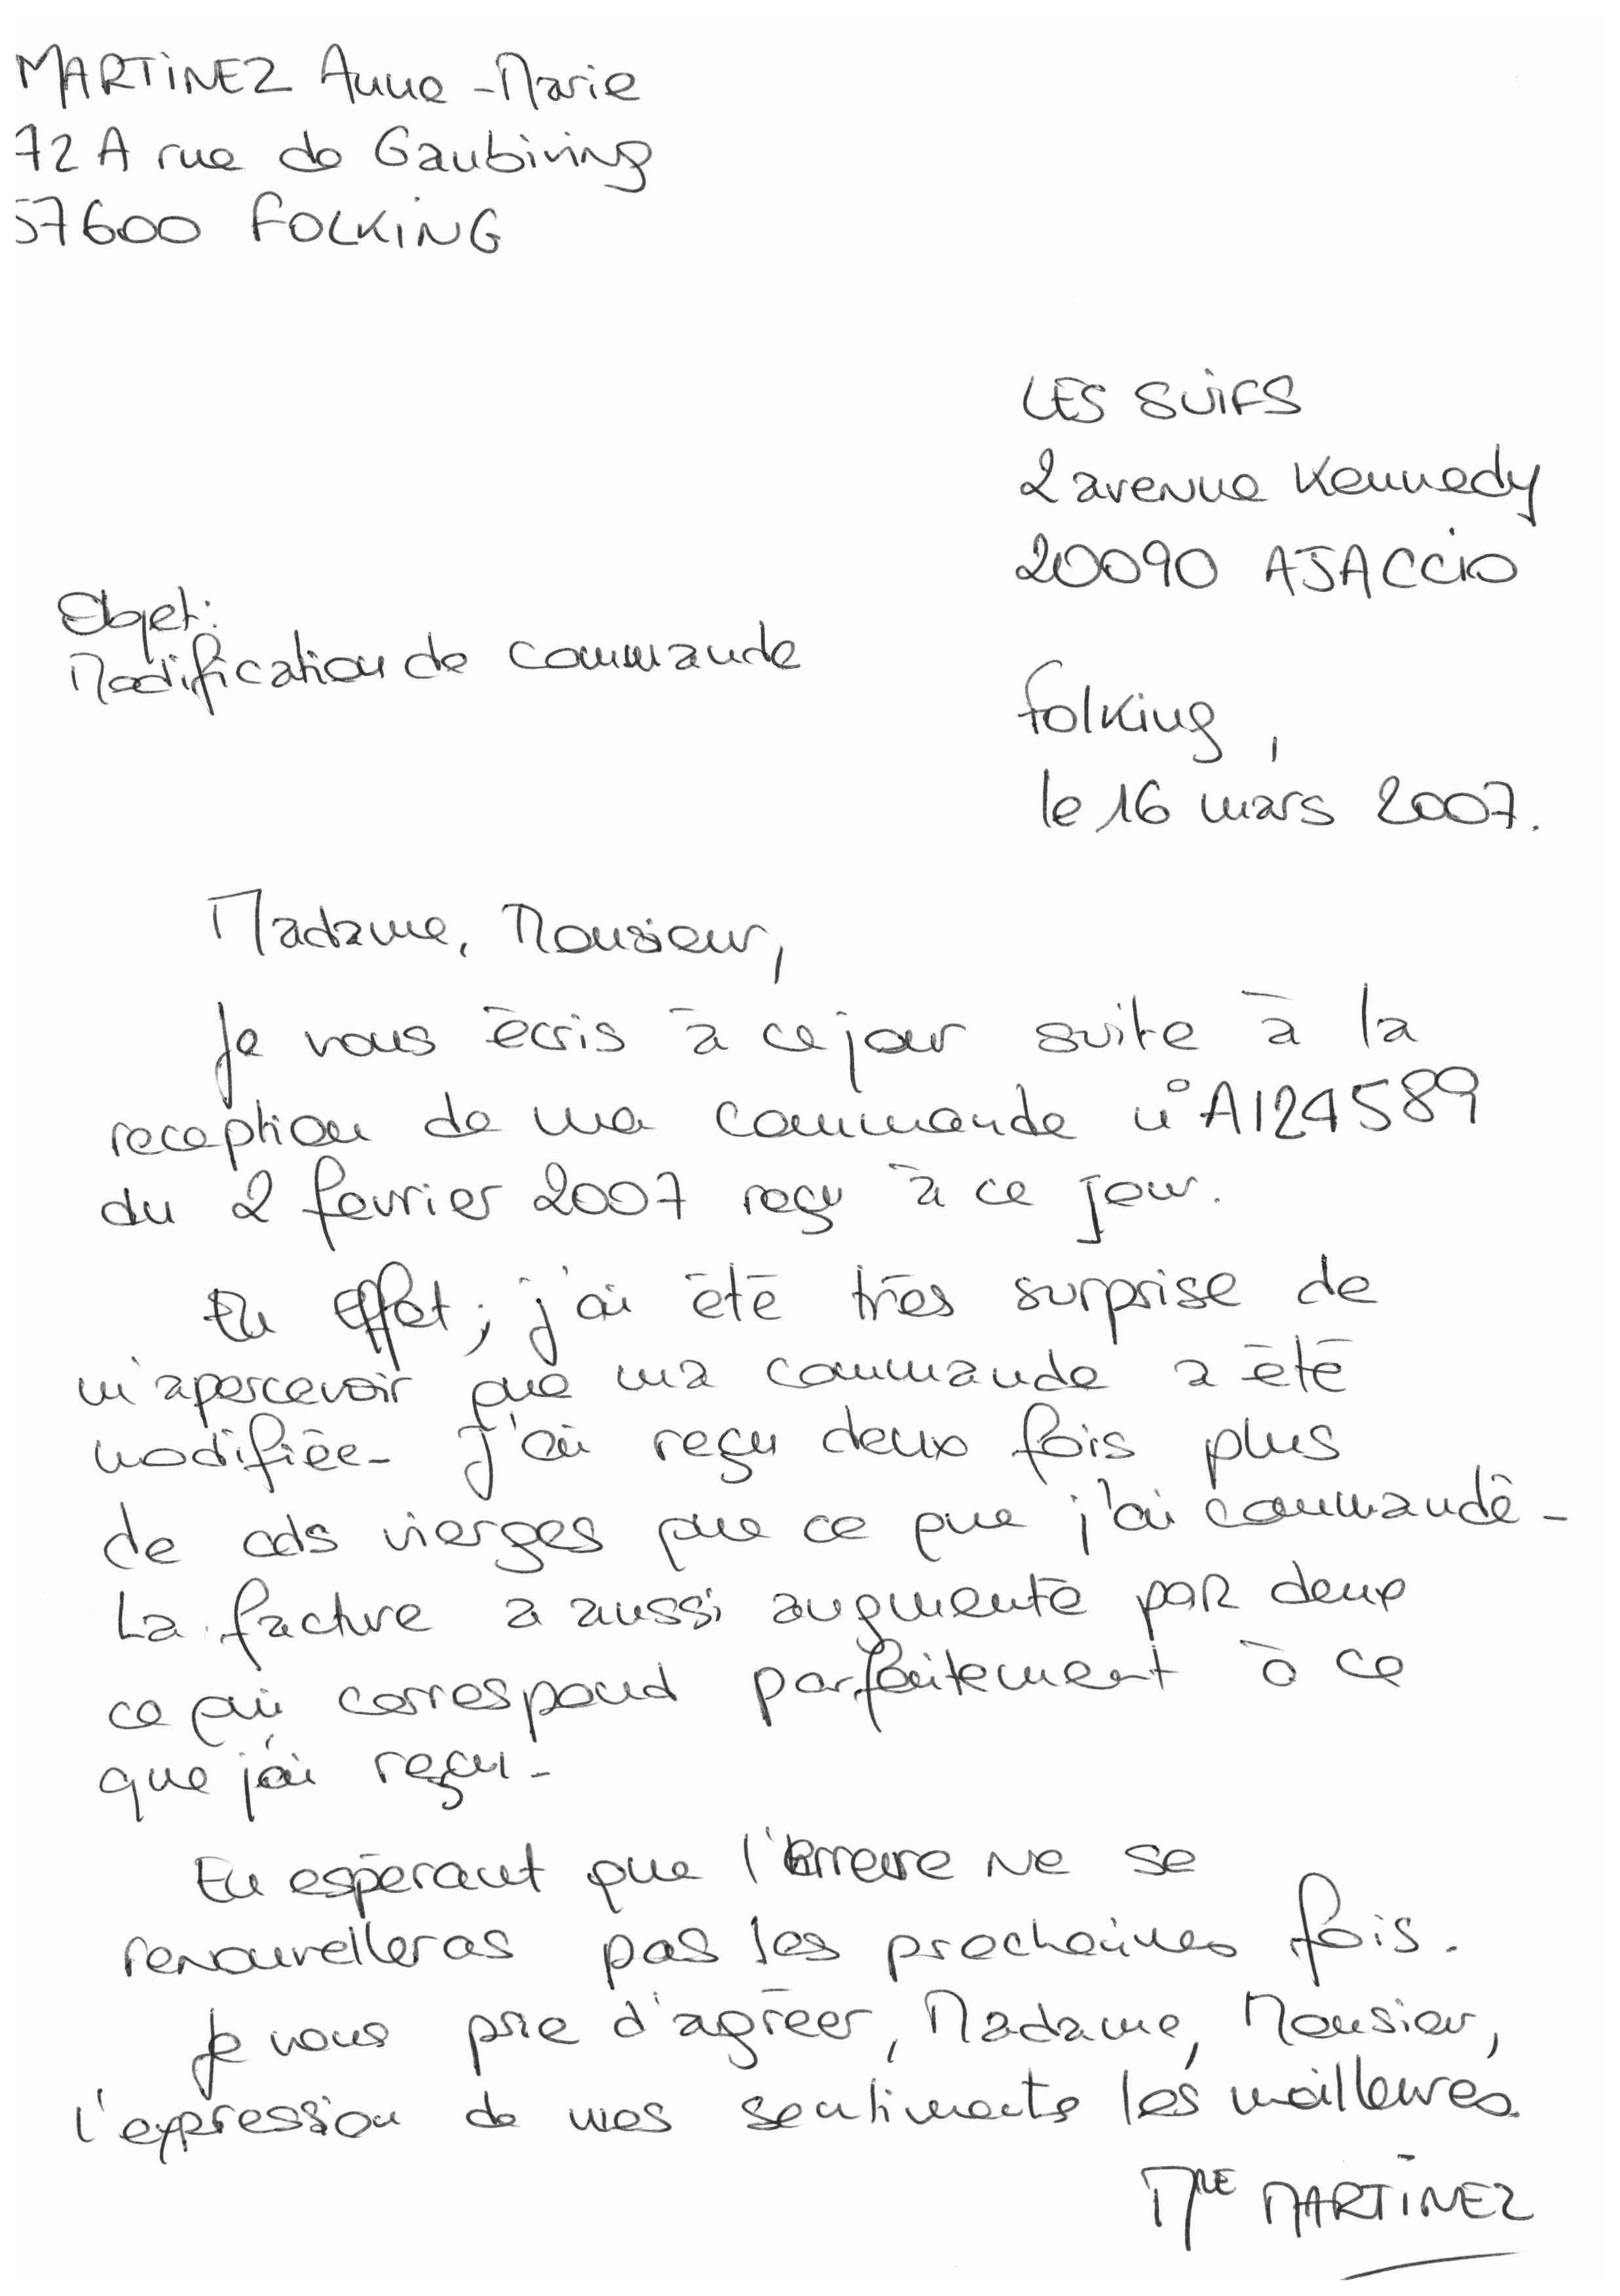 MARTINEZ Anne-Marie
72 A rue de Gaubiving
57600 FOLKING
LES SUIFS
2 avenue Kennedy
20090 AJACCIO
Objet:
Modification de commande
Folking,
le 16 mars 2007.
Madame, Monsieur,
Je vous écris à ce jour suite à la
reception de ma commande n°A124589
du 2 fevrier 2007 reçu à ce jour.
En effet, j'ai été très surprise de
m'apercevoir que ma commande a été
modifiée. J'ai reçu deux fois plus
de cds vierges que ce que j'ai commandé.
La facture a aussi augmenté par deux
ce qui correspond parfaitement à ce
que j'ai reçu.
En espérant que l'erreure ne se
renouvelleras pas les prochaines fois.
Je vous prie d'agréer, Madame, Monsieur,
l'expression de mes sentiments les meilleures.
Mle MARTINEZ